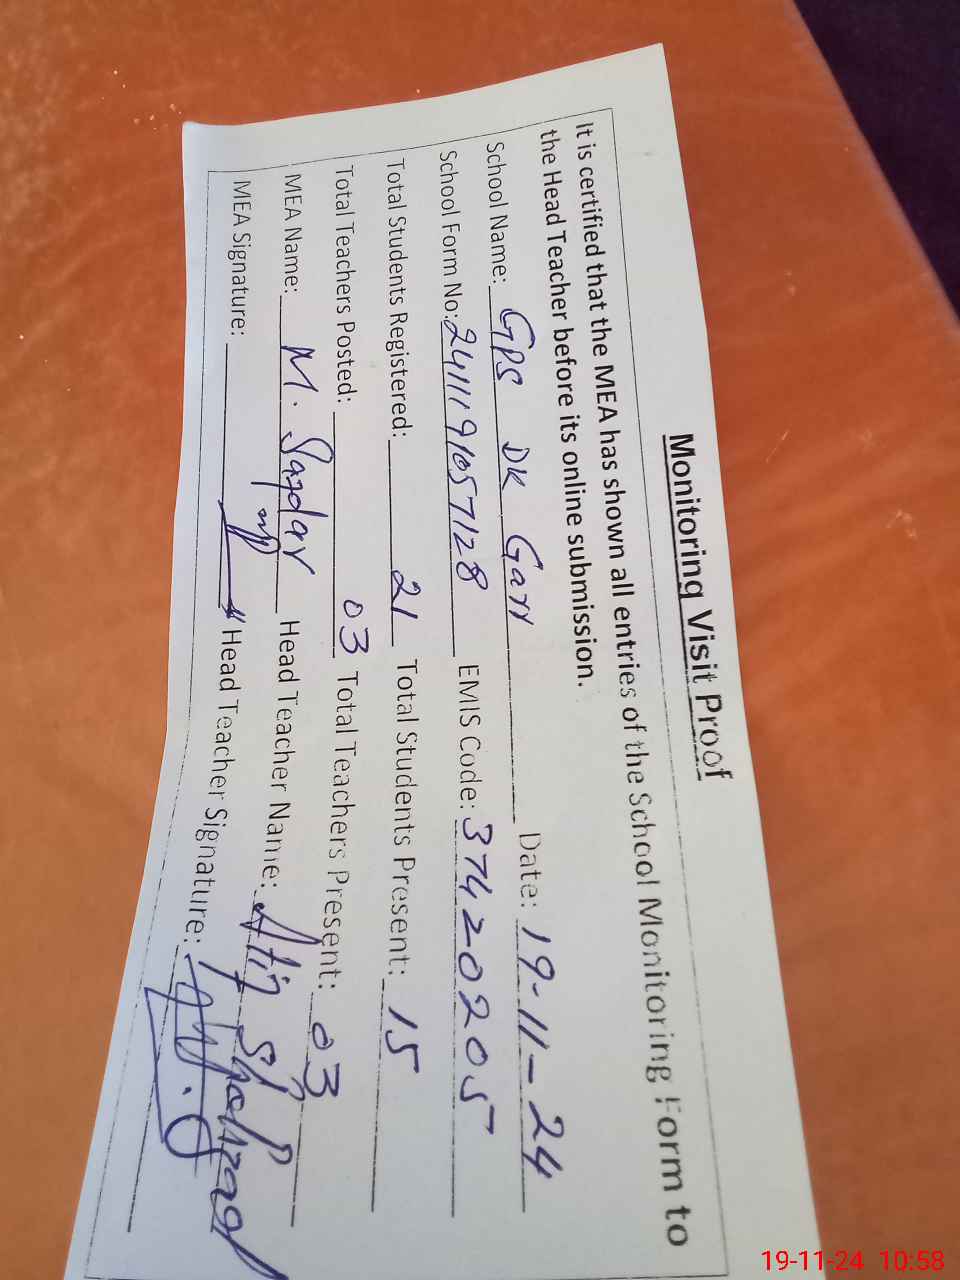 Monitoring Visit Proof
It is certified that the MEA has shown all entries of the School Monitoring Form to
the Head Teacher before its online submission.
School Name: GPS DK Garr Date: 19-11-24
School Form No: 2411191057128 EMIS Code: 37420205
Total Students Registered: 21 Total Students Present: 15
Total Teachers Posted: 03 Total Teachers Present: 03
MEA Name: M. Safdar Head Teacher Name:
MEA Signature: Head Teacher Signature:
19-11-24 10:58